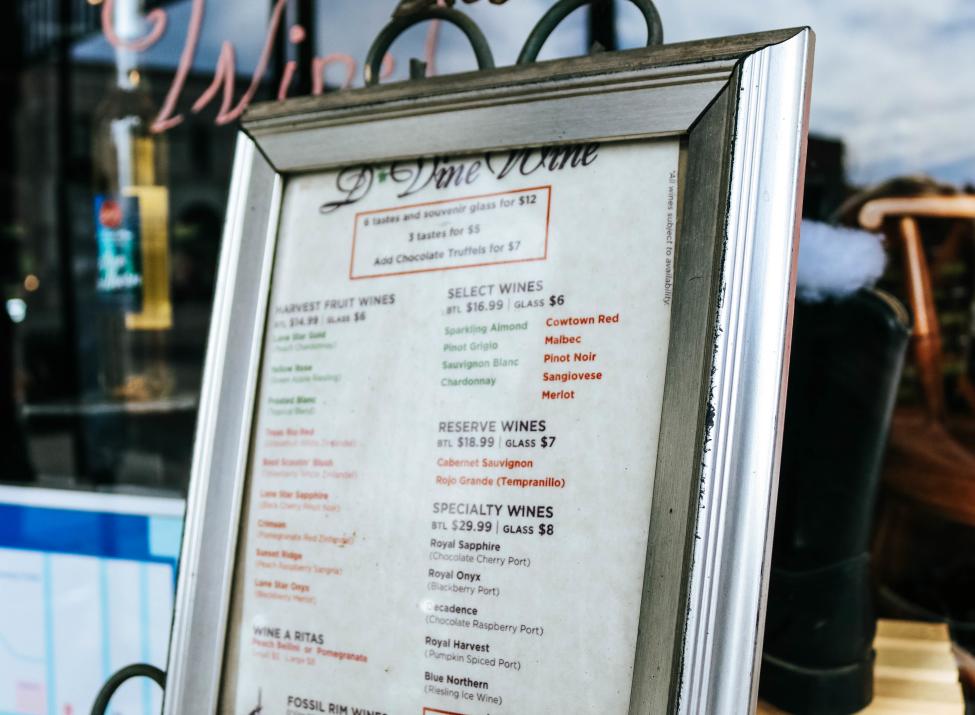 Wine
D'Vine Wine
6 tastes and souvenir glass for $12
3 tastes for $5
Add Chocolate Truffels for $7
*All wines subject to availability.
HARVEST FRUIT WINES
BTL $14.99 | GLASS $6
Lone Star Gold
(Peach Chardonnay)
Yellow Rose
(Green Apple Riesling)
Frosted Blanc
(Tropical Blend)
Texas Rio Red
(Grapefruit White Zinfandel)
Boot Scootin' Blush
(Strawberry White Zinfandel)
Lone Star Sapphire
(Black Cherry Pinot Noir)
Crimson
(Pomegranate Red Zinfandel)
Sunset Ridge
(Peach Raspberry Sangria)
Lone Star Onyx
(Blackberry Merlot)
WINE A RITAS
Peach Bellini or Pomegranate
Small $5 Large $8
FOSSIL RIM WINES
SELECT WINES
BTL $16.99 | GLASS $6
Sparkling Almond
Pinot Grigio
Sauvignon Blanc
Chardonnay
Cowtown Red
Malbec
Pinot Noir
Sangiovese
Merlot
RESERVE WINES
BTL $18.99 | GLASS $7
Cabernet Sauvignon
Rojo Grande (Tempranillo)
SPECIALTY WINES
BTL $29.99 | GLASS $8
Royal Sapphire
(Chocolate Cherry Port)
Royal Onyx
(Blackberry Port)
Decadence
(Chocolate Raspberry Port)
Royal Harvest
(Pumpkin Spiced Port)
Blue Northern
(Riesling Ice Wine)